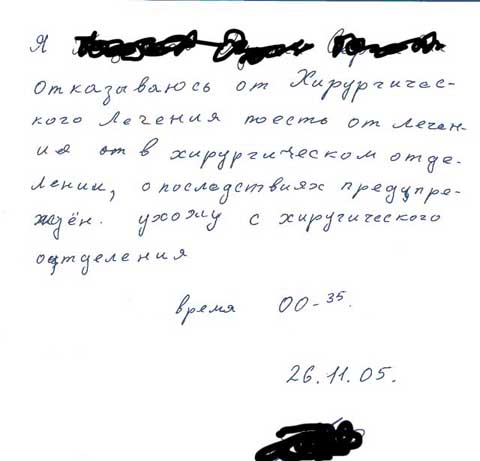 Я
отказываюсь от Хирургичес-
кого Лечения тоесть от лечен-
ия от в хирургическом отде-
лении, о последствиях предупре-
ждён. ухожу с хиругического
оцтделения
время 00-35.
26.11.05.